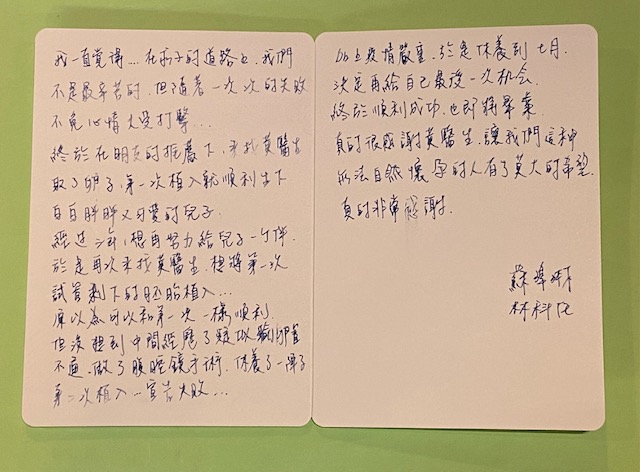 我一直覺得...在求子的道路上,我們
不是最辛苦的.但隨著一次次的失敗
不免心情大受打擊...
終於在朋友的推薦下,來找黃醫生
取了卵子,第一次植入就順利生下
白白胖胖又可愛的兒子.
經過三年,想再努力給兒子一個伴
於是再次來找黃醫生,想將第一次
試管剩下的胚胎植入...
原以為可以和第一次一樣順利.
但沒想到中間經歷了疑似輸卵管
不通.做了腹腔鏡手術.休養了一陣子
第二次植入一宣告失敗...
加上疫情嚴重.於是休養到七月.
決定再給自己最後一次机会.
終於順利成功.也即將畢業.
真的很感謝黃醫生.讓我們這种
無法自然懷孕的人有了莫大的希望.
真的非常感謝.
蘇
林科